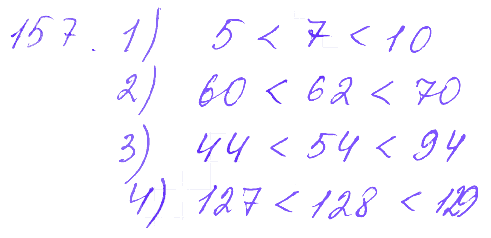 157. 1) 5 < 7 < 10
2) 60 < 62 < 70
3) 44 < 54 < 94
4) 127 < 128 < 129